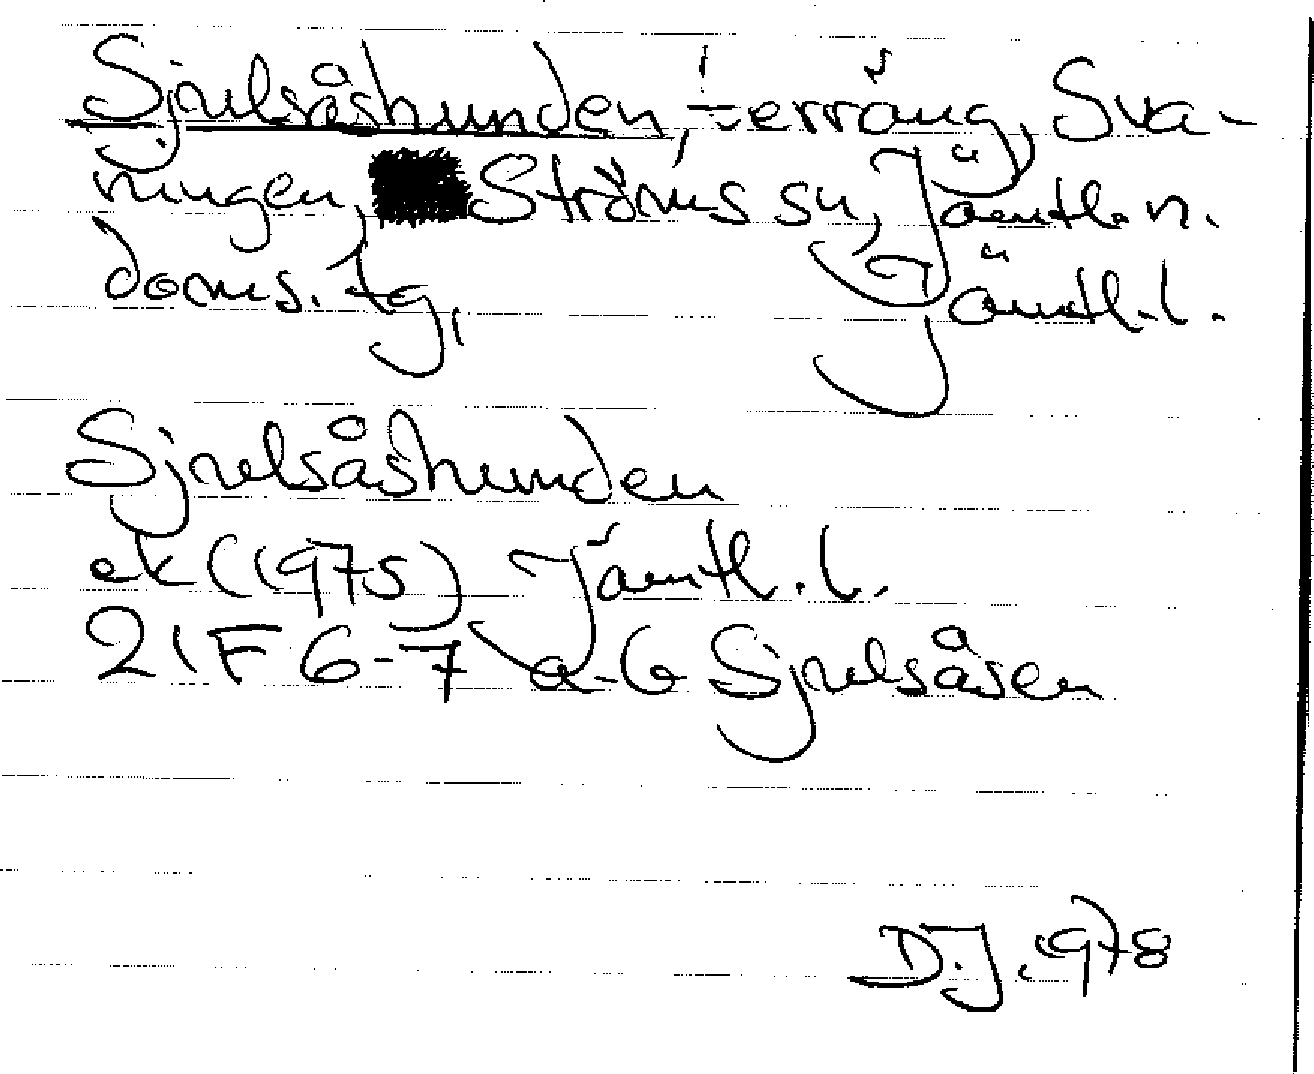 Sjulsåshunden, terräng, Sva-
ningen, Ströms sn, Jämtl. n.
doms. tg, Jämtl. l.
Sjulsåshunden
ek (1975) Jämtl. l.
21F 6-7 a-b Sjulsåsen
D.J. 1978